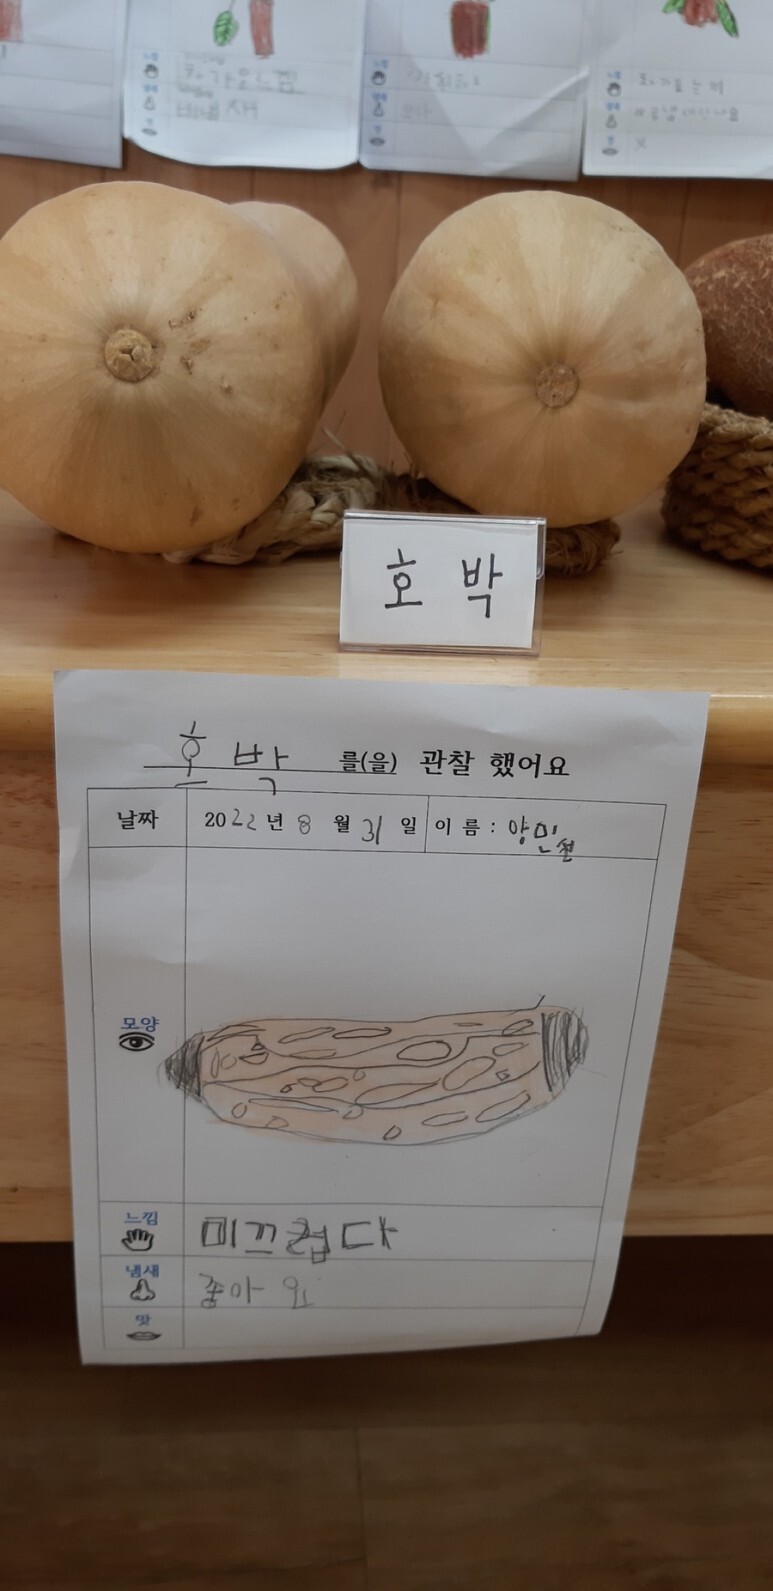 느낌
냄새
맛
느낌
냄새
맛
느낌 차가운 느낌
냄새
맛
X
호 박
호 박 를(을) 관찰 했어요
날짜 2022년 8 월 31 일 이 름 : 양민설
모양
느낌 미끄럽다
냄새 좋아 요
맛